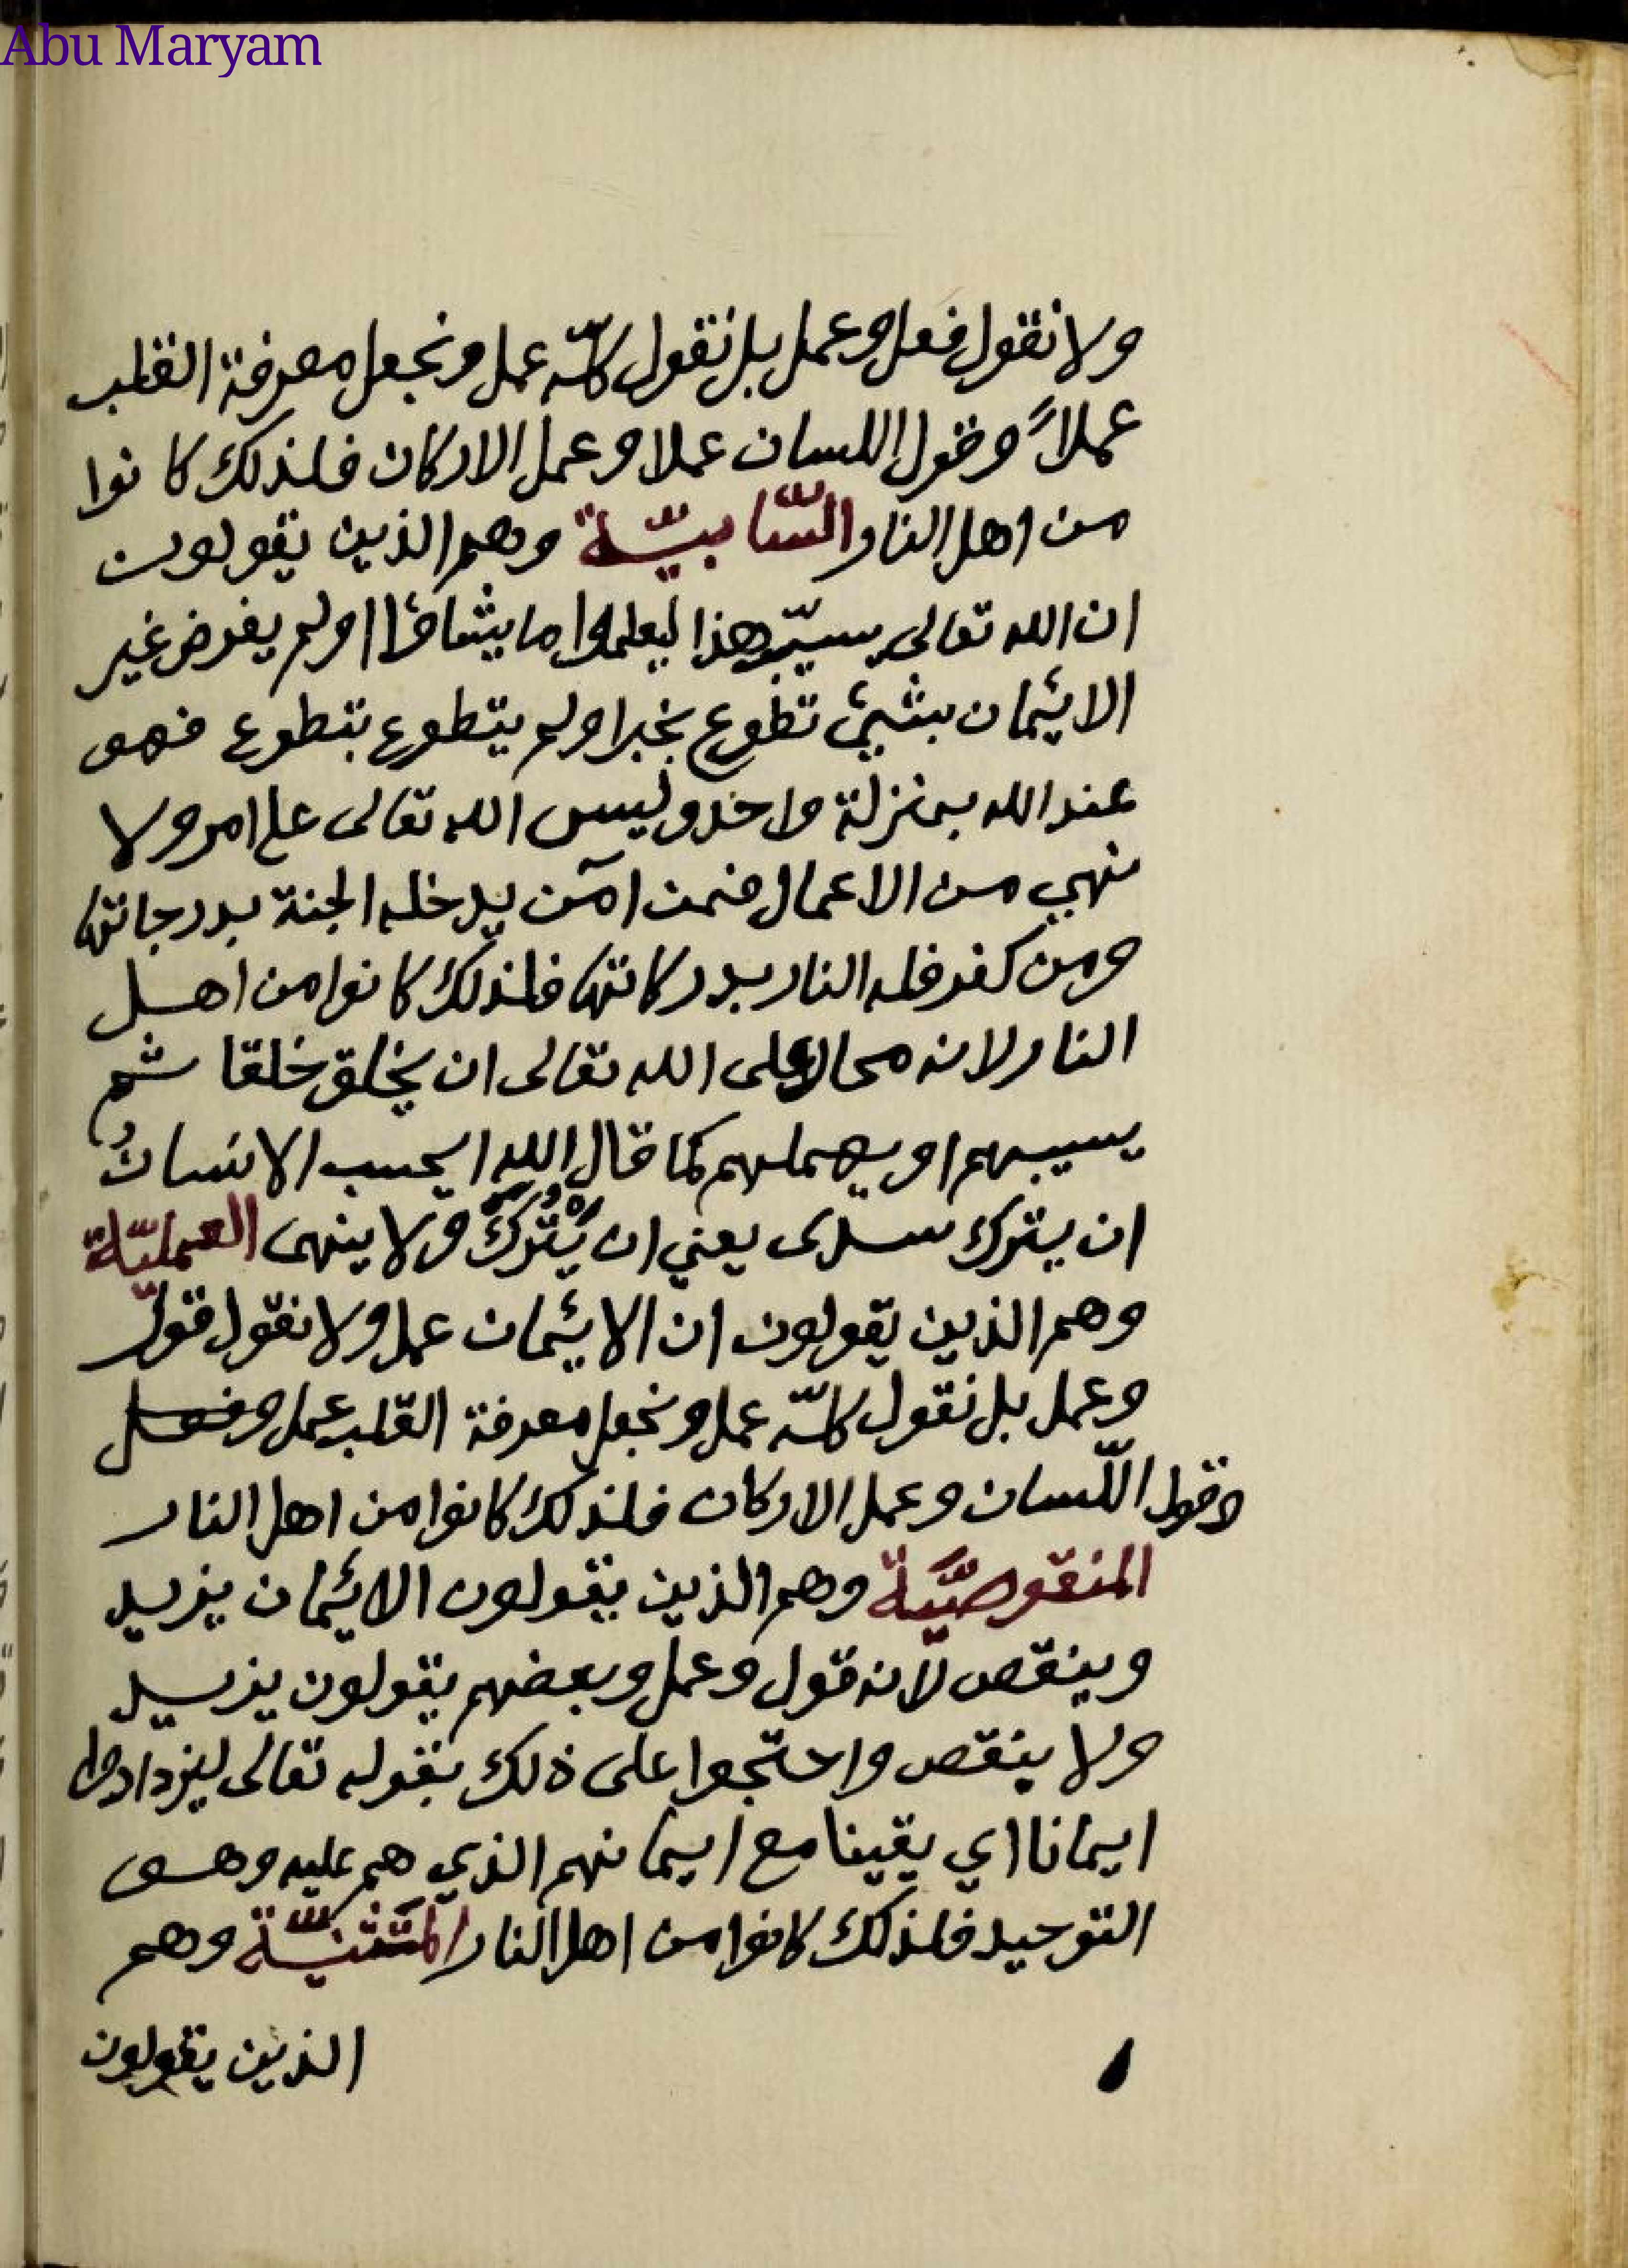 Abu Maryam
ولا نقول فعل وعمل بل نقول كلّه عمل ونجعل معرفة القلب
عملاً وقول اللسان عملا وعمل الاركان فلذلك كانوا
من اهل النار السّابيّة وهم الذين يقولون
ان الله تعالى سيّب هذا ليعلموا ما يشاؤا ولم يفرض غير
الايمان بشيئ تطوع بخيرا ولم يتطوع بتطوع فهو
عند الله بمنزلة واحد وليس الله تعالى على امر ولا
نهي من الاعمال فمن آمن يدخله الجنة بدرجاتها
ومن كفر فله النار بدركاتها فلذلك كانوا من اهل
النار لانه محال على الله تعالى ان يخلق خلقا ثم
يسيبهم او يهملهم كما قال الله ايحسب الانسانُ
ان يترك سدى يعني ان يُتْرَكَ ولا ينهى العمليّة
وهم الذين يقولون ان الايمان عمل ولا نقول قولٌ
وعمل بل نقول كلّه عمل ونجعل معرفة القلب عمل وفعل
وقول اللّسان وعمل الاركان فلذلك كانوا من اهل النار
المنقوصيَّة وهم الذين يقولون الايمان يزيد
وينقص لانه قول وعمل وبعضهم يقولون يزيد
ولا ينقص واحتجوا على ذلك بقوله تعالى ليزدادوا
ايمانا اي يقينا مع ايمانهم الذي هم عليه وهو
التوحيد فلذلك كانوا من اهل النار المستثنيّة وهم
الذين يقولون